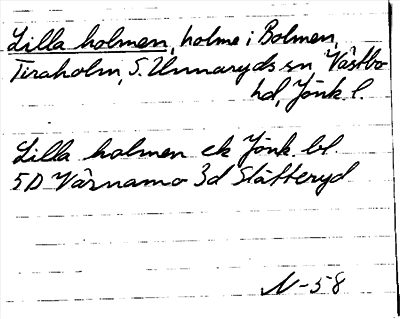 Lilla holmen, holme i Bolmen,
Tiraholm, S. Unnaryds sn Västbo
hd, Jönk l.
Lilla holmen ek Jönk. bl.
5D Värnamo 3d Slätteryd
N-58